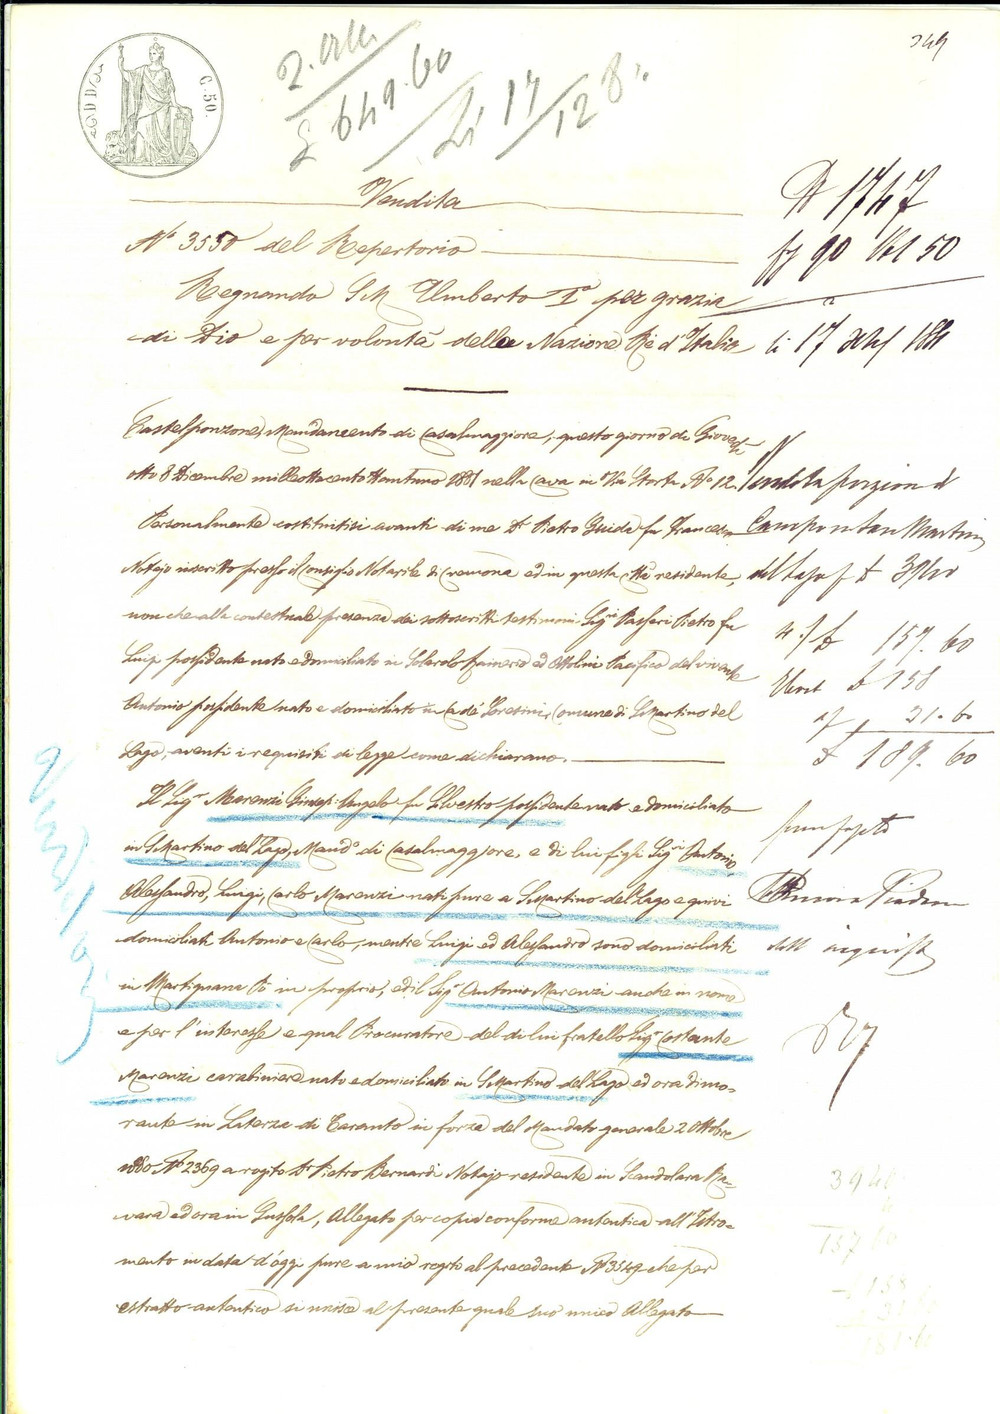 349
C. 50.
£ 649.60
Li 17/12 8
Vendita
N° 3550 del Repertorio
Regnando S. M. Umberto I° per grazia
di Dio e per volontà della Nazione Re d'Italia
N 1747
fg 90 Vol 50
li 17 Xbre 1881
Castelponzone, Mandamento di Casalmaggiore, questo giorno di Giovedì
otto 8 Dicembre milleottocentottantuno 1881 nella Casa in Via Storta N° 12.
Personalmente costituitisi avanti di me Dr Pietro Guida fu Francesco
Notajo inscritto presso il Consiglio Notarile di Cremona ed in questa residente,
non che alla contestuale presenza dei sottoscritti testimoni Sigri Passeri Pietro fu
Luigi possidente nato e domiciliato in Solarolo Rainerio ed Ottolini Pacifico del vivente
Antonio possidente nato e domiciliato in Ca de' Soresini, Comune di S. Martino del
Lago, aventi i requisiti di legge come dichiarano.
Il Sigr Marenzi Giusepe Angelo fu Silvestro possidente nato e domiciliato
in S. Martino del Lago, Mando di Casalmaggiore, e di lui figli Sigri Antonio,
Alessandro, Luigi, Carlo Marenzi nati pure a S. Martino del Lago e quivi
domiciliati Antonio e Carlo, mentre Luigi ed Alessandro sono domiciliati
in Martignana Po in proprio, ed il Sigr Antonio Marenzi anche in nome
e per l'interesse e qual Procuratore del di lui fratello Sigr Costante
Marenzi carabiniere nato e domiciliato in S. Martino del Lago ed ora dimo-
rante in Laterza di Taranto in forza del Mandato generale 2 Ottobre
1880 N° 2369 a rogito Dr Pietro Bernardi Notajo residente in Scandolara Ra-
vara ed ora in Gussola, Allegato per copia conforme autentica all'Istro-
mento in data d'oggi pure a mio rogito al precedente N° 3549 che per
estratto autentico si unisce al presente quale suo unico Allegato
Vendita porzione di
Campo in San Martino
del Lago
157.60
158
31.60
189.60
3940
4
157 60
158
31 60